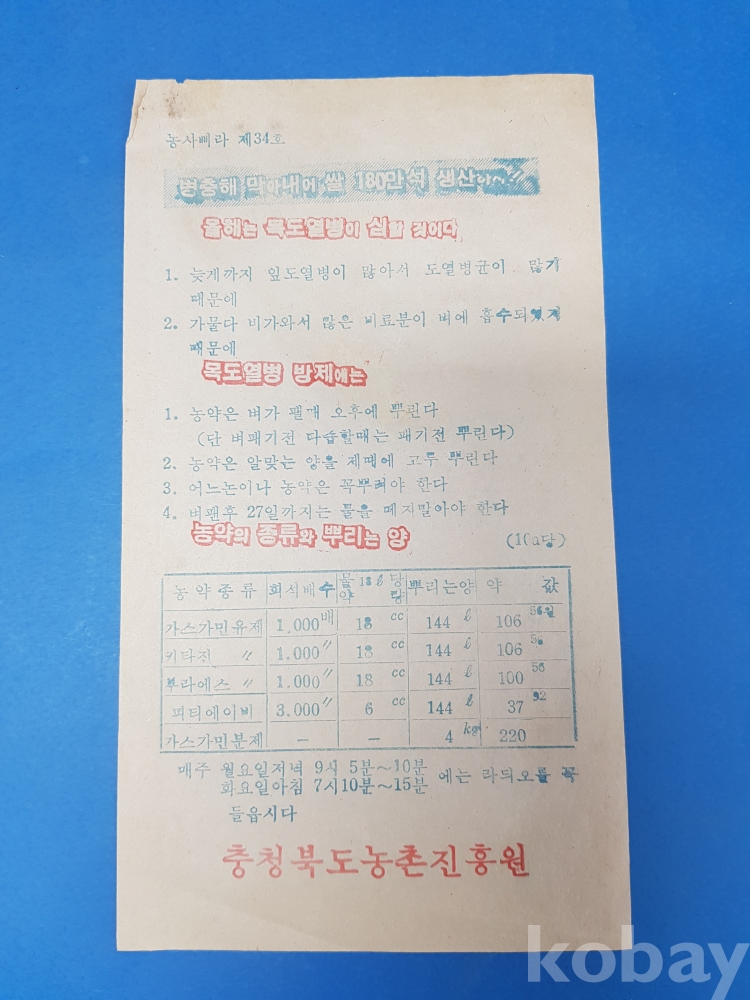 농사삐라 제34호
병충해 막아내어 쌀 180만석 생산하~!!
올해는 목도열병이 심할 것이다
1. 늦게까지 잎도열병이 많아서 도열병균이 많기
때문에
2. 가물다 비가와서 많은 비료분이 벼에 흡수되었기
때문에
목도열병 방제에는
1. 농약은 벼가 팰때 오후에 뿌린다
(단 벼패기전 다습할때는 패기전 뿌린다)
2. 농약은 알맞는 양을 제때에 고루 뿌린다
3. 어느논이나 농약은 꼭뿌려야 한다
4. 벼팬후 27일까지는 물을 떼지말아야 한다
농약의 종류와 뿌리는 양
(10a당)
농약종류 희석배수 물18ℓ당 약량 뿌리는양 약 값
가스가민유제 1.000배 18cc 144ℓ 106
키타진 〃 1.000〃 18cc 144ℓ 106
부라에스 〃 1.000〃 18cc 144ℓ 100
피티에이비 3.000〃 6cc 144ℓ 37
가스가민분제 — — 4kg 220
매주 월요일저녁 9시 5분~10분
화요일아침 7시10분~15분 에는 라듸오를 꼭
들읍시다
충청북도농촌진흥원
kobay